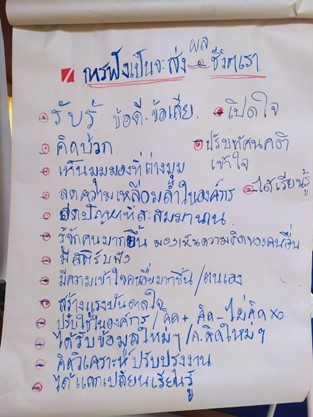 การฟังเป็นจะส่งผล ชีวิตเรา
รับรู้ ข้อดี-ข้อเสีย
เปิดใจ
คิดบวก
ปรับทัศนคติ
เข้าใจ
เห็นมุมมองที่ต่างมุม
ได้เรียนรู้
ลดความเหลื่อมล้ำในองค์กร
ลดปัญหา
รู้จักคนมากขึ้น มองเห็นความคิดของคนอื่น
มีสติรับฟัง
มีความเข้าใจคนอื่นมากขึ้น/ตนเอง
สร้างแรงบันดาลใจ
ปรับใช้ในองค์กร/คิด+ คิด- ไม่คิด
ได้รับข้อมูลใหม่ๆ/ค.คิดใหม่ๆ
คิดวิเคราะห์ปรับปรุงงาน
ได้แลกเปลี่ยนเรียนรู้